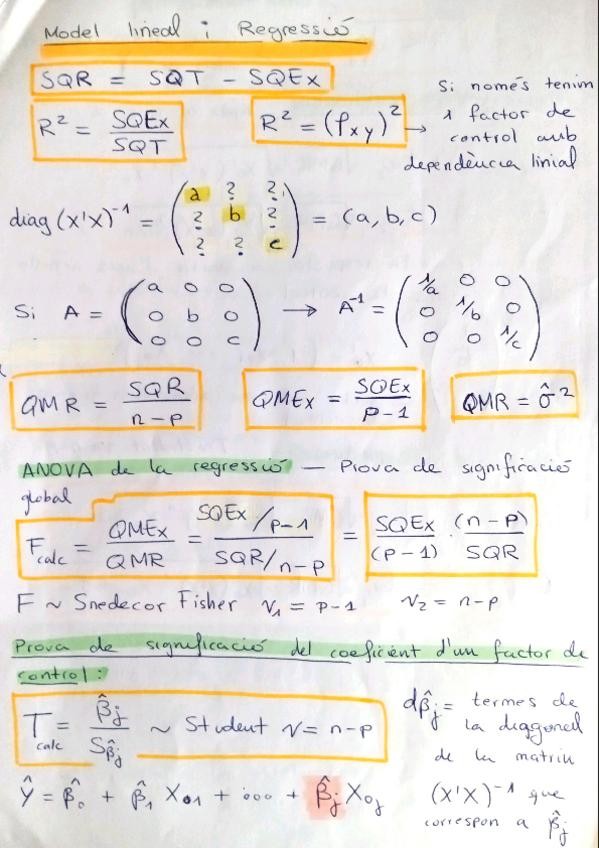 Model lineal i Regressió
SQR = SQT - SQEx
R² = SQEx / SQT
R² = (ρxy)² →
Si només tenim
1 factor de
control amb
dependència linial
diag (X'X)⁻¹ = ( a ? ? ; ? b ? ; ? ? c ) = (a, b, c)
Si A = ( a 0 0 ; 0 b 0 ; 0 0 c ) → A⁻¹ = ( 1/a 0 0 ; 0 1/b 0 ; 0 0 1/c )
QMR = SQR / n-p
QMEx = SQEx / p-1
QMR = σ̂²
ANOVA de la regressió — Prova de significació
global
Fcalc = QMEx / QMR = SQEx/p-1 / SQR/n-p = SQEx / (p-1) · (n-p) / SQR
F ~ Snedecor Fisher ν₁ = p-1 ν₂ = n-p
Prova de significació del coeficient d'un factor de
control:
Tcalc = β̂j / Sβ̂j ~ Student ν = n-p
dβ̂j = termes de
la diagonal
de la matriu
(X'X)⁻¹ que
correspon a β̂j
Ŷ = β̂₀ + β̂₁ X₀₁ + ... + β̂j X₀j